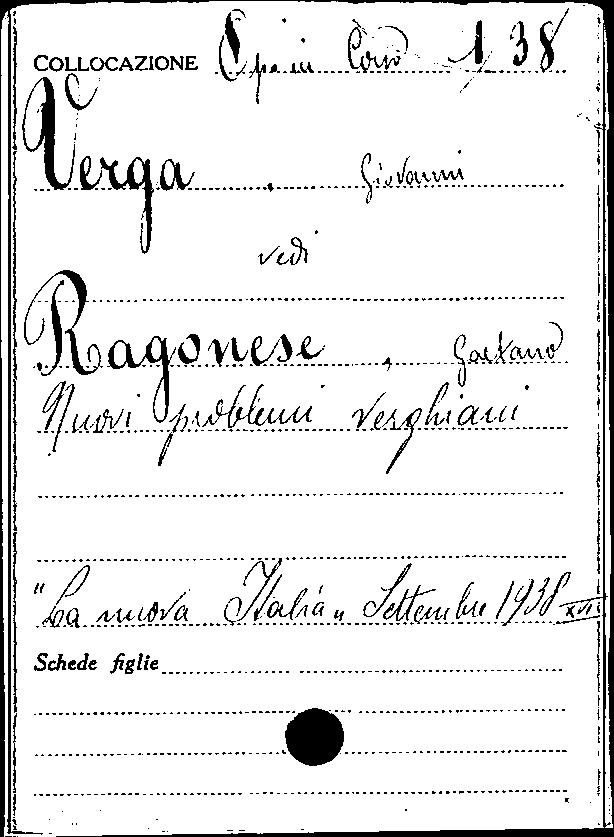 COLLOCAZIONE 1 38
Verga, Giovanni
vedi
Ragonese, Gaetano
Nuovi problemi verghiani
"La nuova Italia" Settembre 1938 XVI
Schede figlie